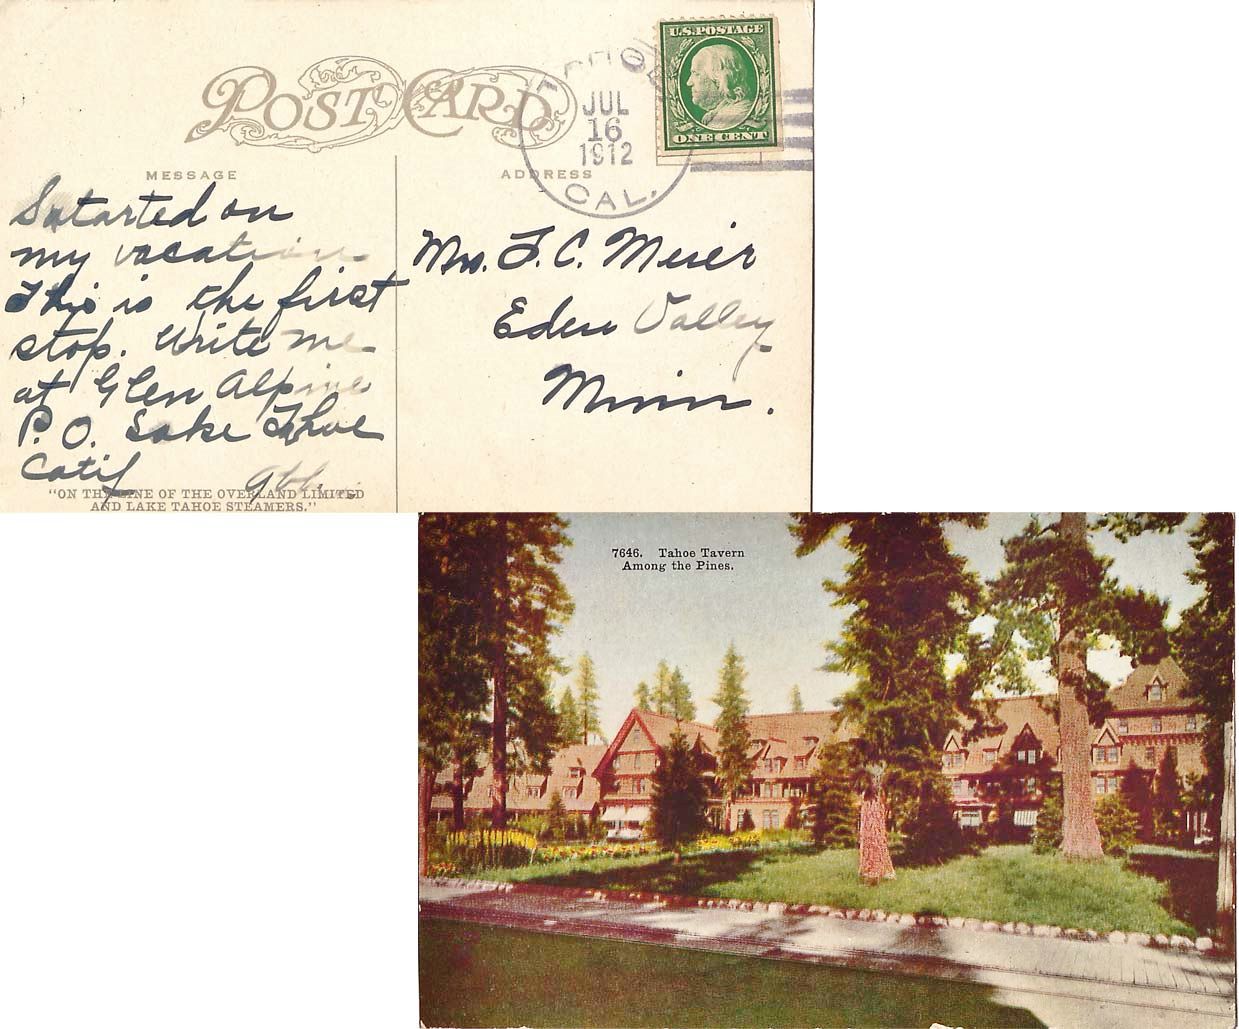 POST CARD
MESSAGE
ADDRESS
U.S. POSTAGE
ONE CENT
JUL
16
1912
CAL.
Satarted on
my vacation
This is the first
stop. Write me
at Glen Alpine
P.O. Lake Thoe
Calif
Mrs. F. C. Meier
Eden Valley
Minn.
"ON THE LINE OF THE OVERLAND LIMITED
AND LAKE TAHOE STEAMERS."
7646. Tahoe Tavern
Among the Pines.